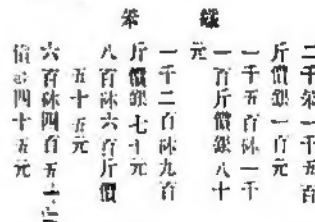 鐵 笨
二千砵五百
斤價銀一百元
一千五百砵一千
一百斤價銀八十
元
一千二百砵九百
斤價銀七十元
八百砵六百斤價
五十五元
六百砵四百五十
價四十五元